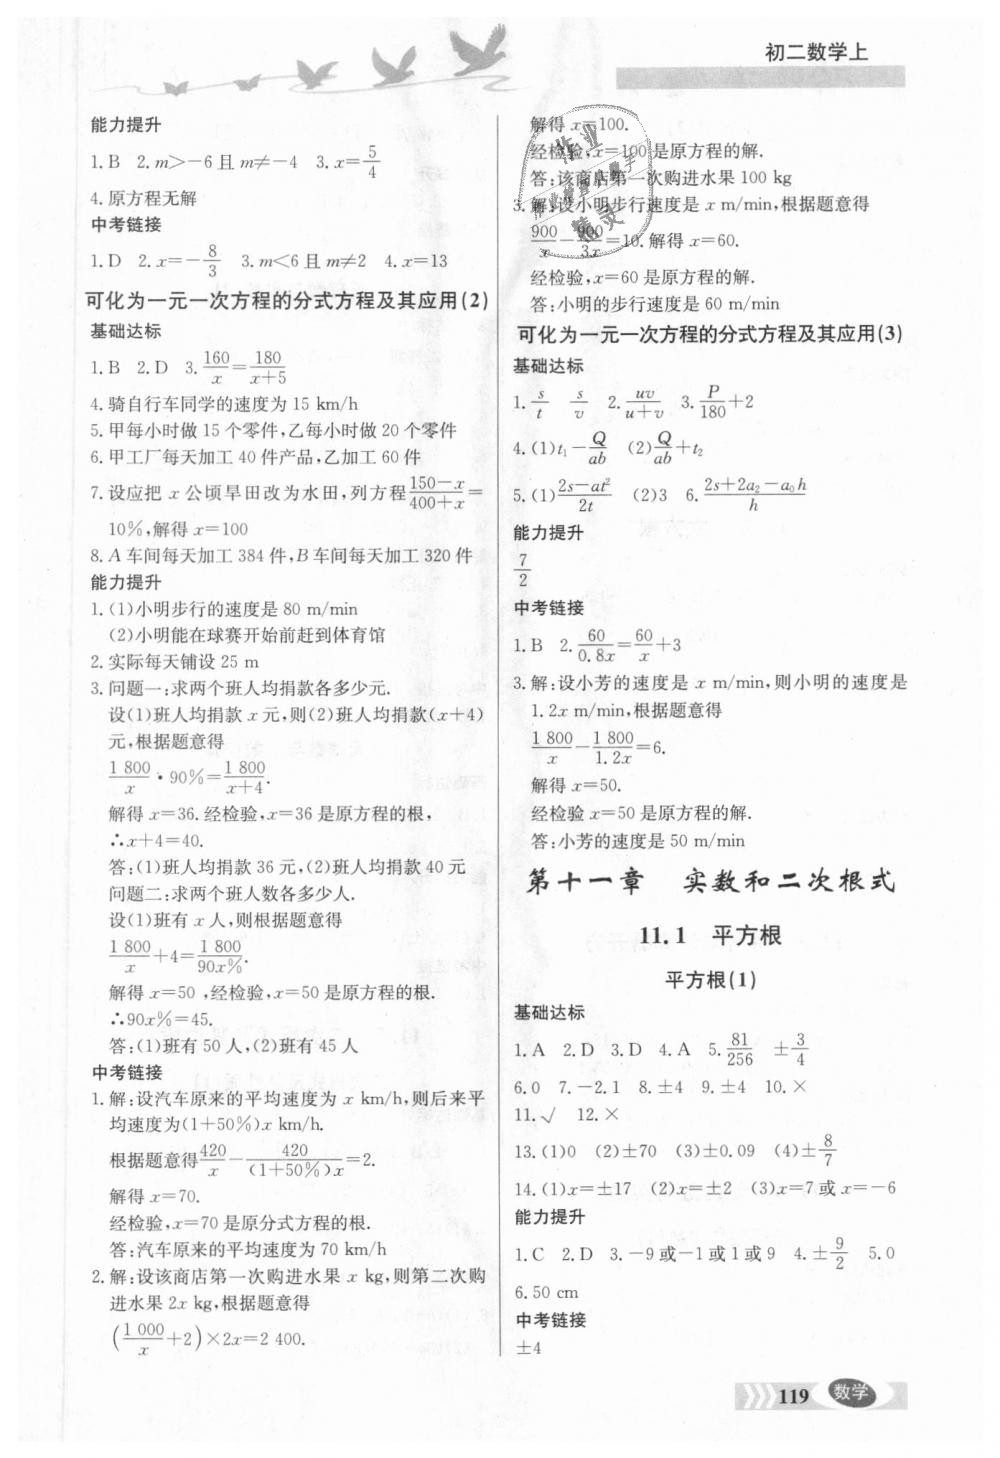 初二数学上
能力提升
1.B 2.m>-6且m≠-4 3.x=5/4
4.原方程无解
中考链接
1.D 2.x=-8/3 3.m<6且m≠2 4.x=13
可化为一元一次方程的分式方程及其应用(2)
基础达标
1.B 2.D 3.160/x=180/(x+5)
4.骑自行车同学的速度为15 km/h
5.甲每小时做15个零件,乙每小时做20个零件
6.甲工厂每天加工40件产品,乙加工60件
7.设应把x公顷旱田改为水田,列方程(150-x)/(400+x)=
10%,解得x=100
8.A车间每天加工384件,B车间每天加工320件
能力提升
1.(1)小明步行的速度是80 m/min
(2)小明能在球赛开始前赶到体育馆
2.实际每天铺设25 m
3.问题一:求两个班人均捐款各多少元.
设(1)班人均捐款x元,则(2)班人均捐款(x+4)
元,根据题意得
1 800/x·90%=1 800/(x+4).
解得x=36.经检验,x=36是原方程的根,
∴x+4=40.
答:(1)班人均捐款36元,(2)班人均捐款40元
问题二:求两个班人数各多少人.
设(1)班有x人,则根据题意得
1 800/x+4=1 800/90x%.
解得x=50,经检验,x=50是原方程的根.
∴90x%=45.
答:(1)班有50人,(2)班有45人
中考链接
1.解:设汽车原来的平均速度为x km/h,则后来平
均速度为(1+50%)x km/h.
根据题意得420/x-420/((1+50%)x)=2.
解得x=70.
经检验,x=70是原分式方程的根.
答:汽车原来的平均速度为70 km/h
2.解:设该商店第一次购进水果x kg,则第二次购
进水果2x kg,根据题意得
(1 000/x+2)×2x=2 400.
解得x=100.
经检验,x=100是原方程的解.
答:该商店第一次购进水果100 kg
3.解:设小明步行速度是x m/min,根据题意得
900/x-900/3x=10.解得x=60.
经检验,x=60是原方程的解.
答:小明的步行速度是60 m/min
可化为一元一次方程的分式方程及其应用(3)
基础达标
1.s/t s/v 2.uv/(u+v) 3.P/180+2
4.(1)t₁-Q/ab (2)Q/ab+t₂
5.(1)(2s-at²)/2t (2)3 6.(2s+2a₂-a₀h)/h
能力提升
7/2
中考链接
1.B 2.60/0.8x=60/x+3
3.解:设小芳的速度是x m/min,则小明的速度是
1.2x m/min,根据题意得
1 800/x-1 800/1.2x=6.
解得x=50.
经检验x=50是原方程的解.
答:小芳的速度是50 m/min
第十一章 实数和二次根式
11.1 平方根
平方根(1)
基础达标
1.A 2.D 3.D 4.A 5.81/256 ±3/4
6.0 7.-2.1 8.±4 9.±4 10.×
11.√ 12.×
13.(1)0 (2)±70 (3)±0.09 (4)±8/7
14.(1)x=±17 (2)x=±2 (3)x=7或x=-6
能力提升
1.C 2.D 3.-9或-1或1或9 4.±9/2 5.0
6.50 cm
中考链接
±4
119 数学
作业
精灵